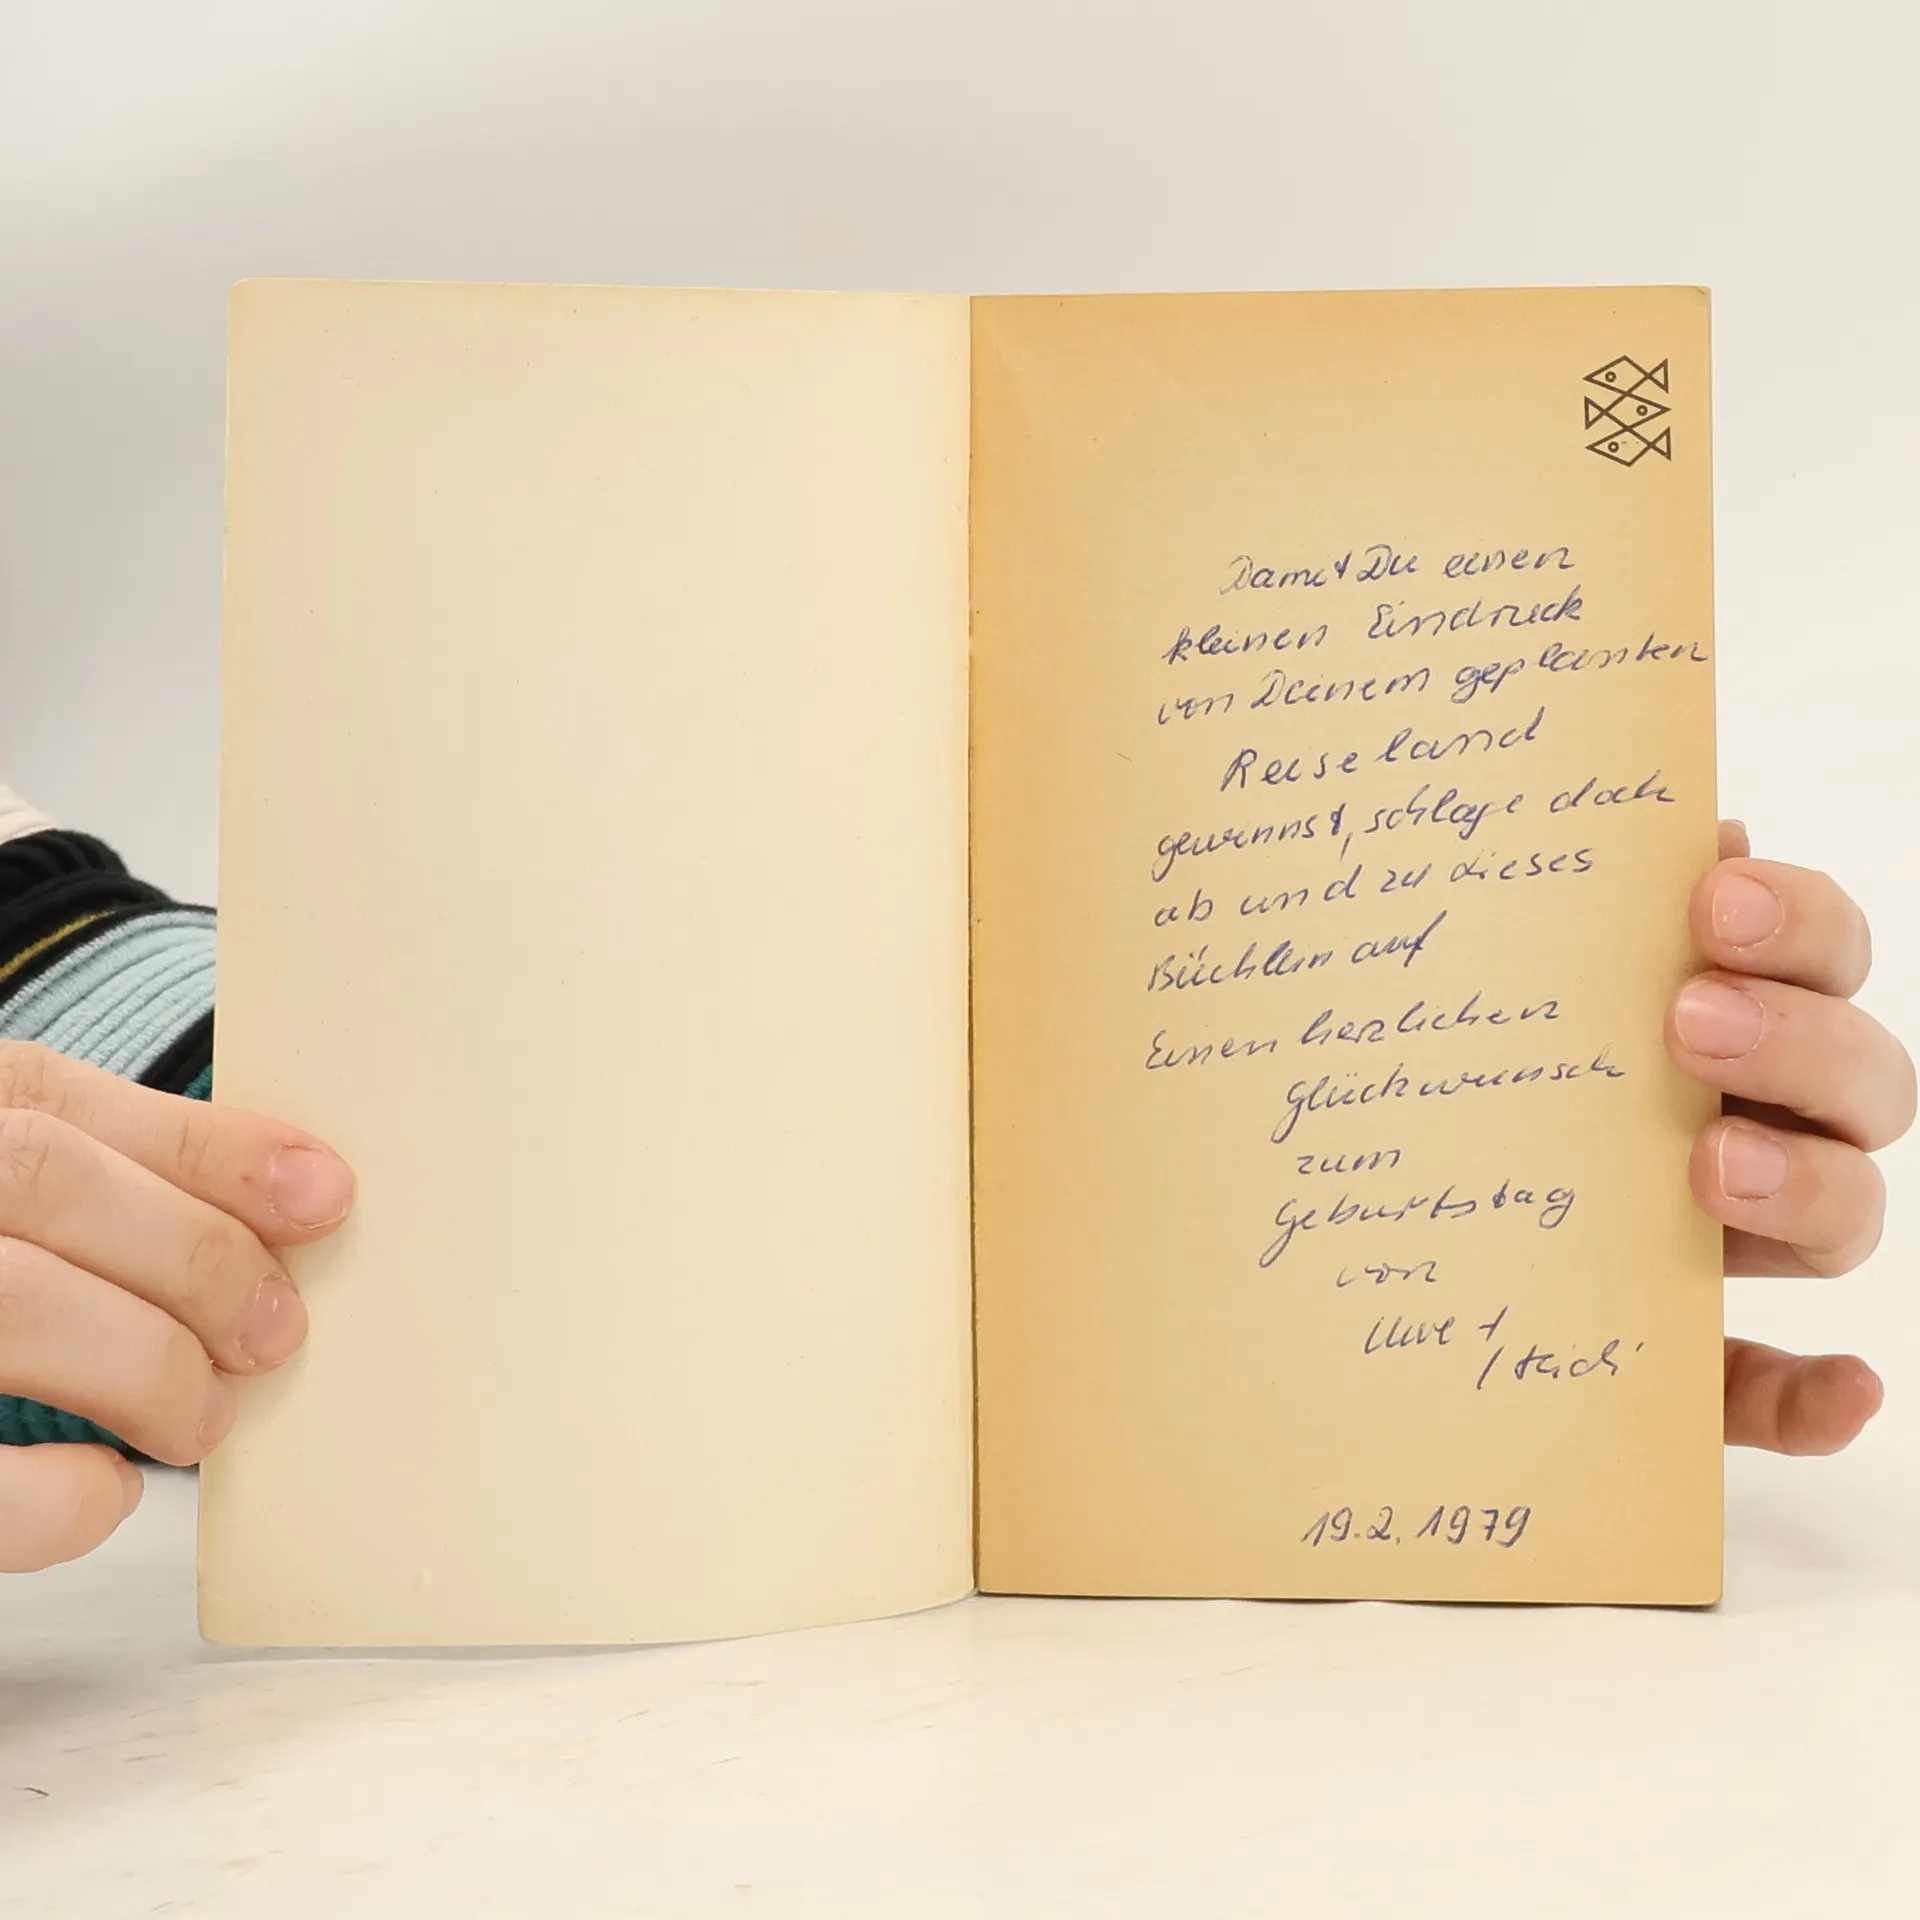 Damit Du einen
kleinen Eindruck
von Deinem geplanten
Reiseland
gewinnst, schlage doch
ab und zu dieses
Büchlein auf
Einen herzlichen
Glückwunsch
zum
Geburtstag
von
Uwe +
Heidi
19.2.1979